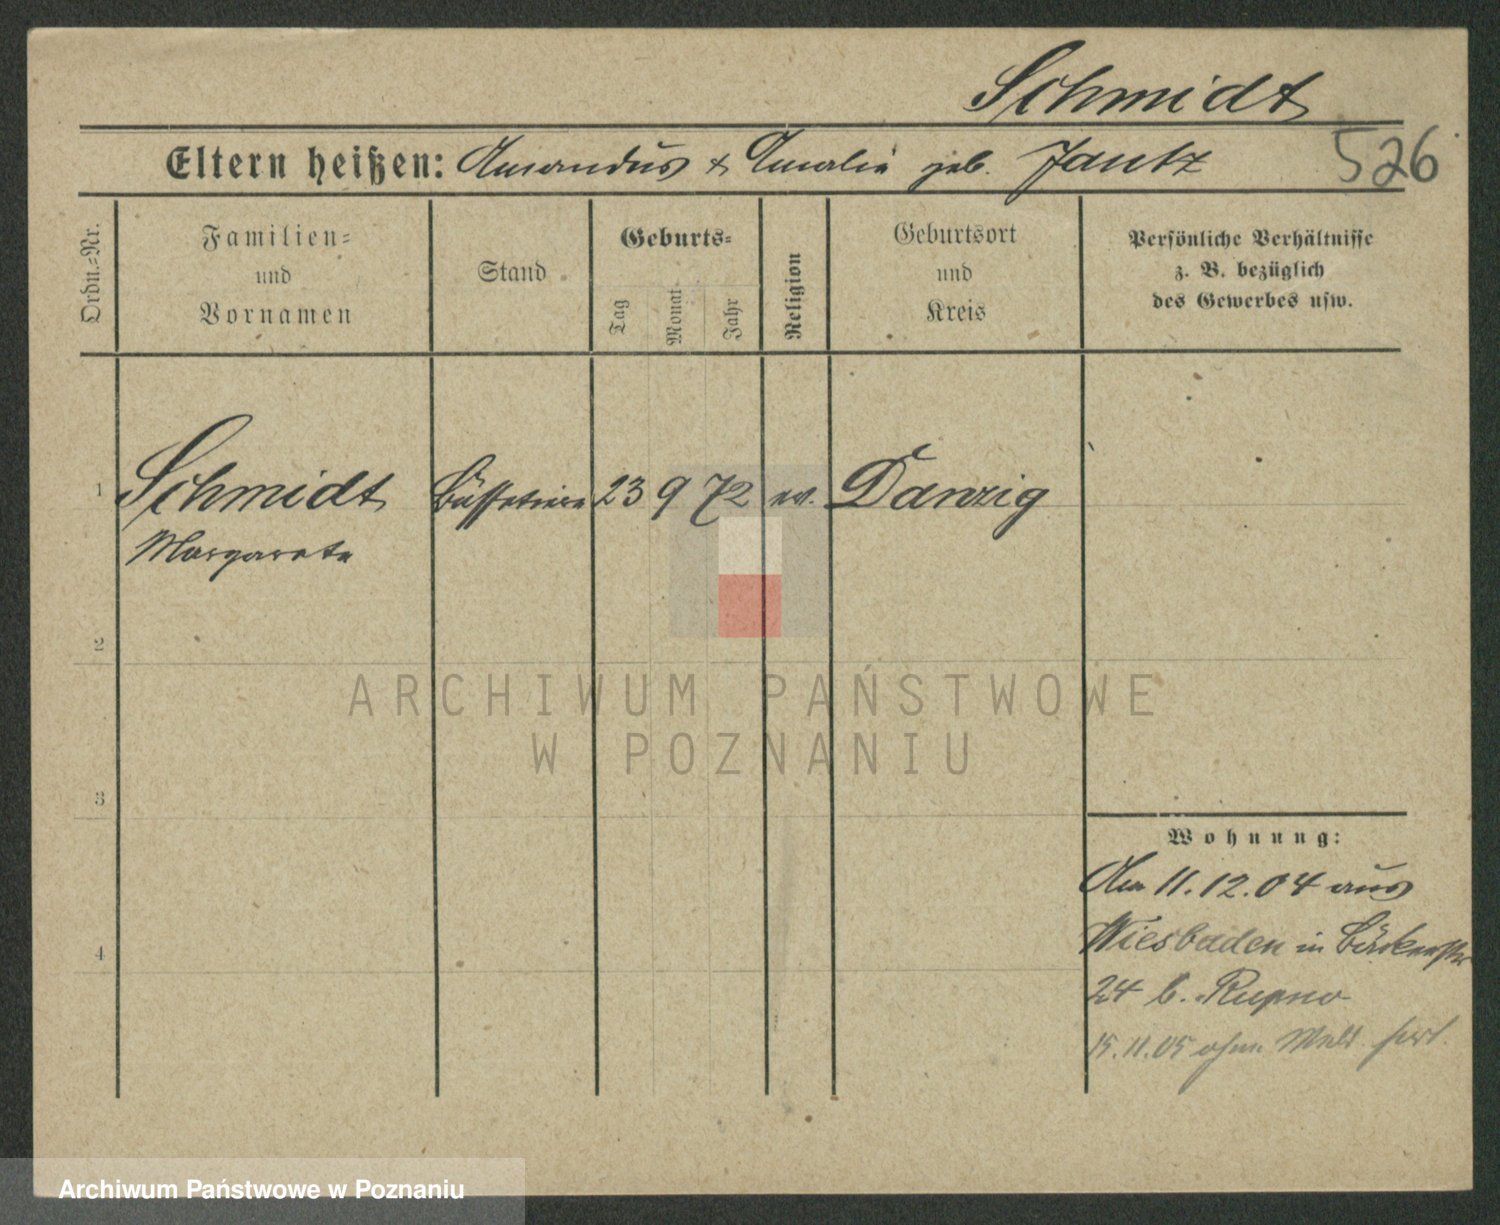 Schmidt
Eltern heißen: Amandus & Amalie geb. Jantz
526
Ordn.-Nr.
Familien-
und
Vornamen
Stand
Geburts-
Tag
Monat
Jahr
Religion
Geburtsort
und
Kreis
Persönliche Verhältnisse
z. B. bezüglich
des Gewerbes usw.
1 Schmidt Büffetiere 23 9 72 ev. Danzig
Margarete
2
ARCHIWUM PAŃSTWOWE
W POZNANIU
3
Wohnung:
Am 11.12.04 aus
Wiesbaden in Bäckerstr
4
24 b. Rupno
15.11.05 ohne Meld.
Archiwum Państwowe w Poznaniu